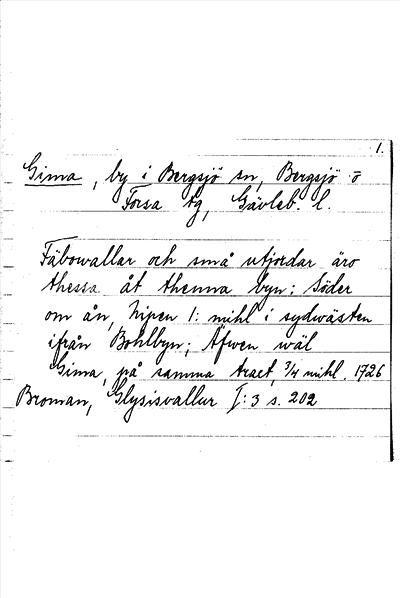 1.
Gima, by i Bergsjö sn, Bergsjö o
Forsa tg, Gävleb. l.
Fäbowallar och små utjordar äro
thessa åt thenna byn; Söder
om ån, Nipen 1: mihl i sydwästen
ifrån Bohlbyn; Äfwen wäl
Gima, på samma tract, 3/4 mihl. 1726
Broman, Glysisvallur I:3 s. 202